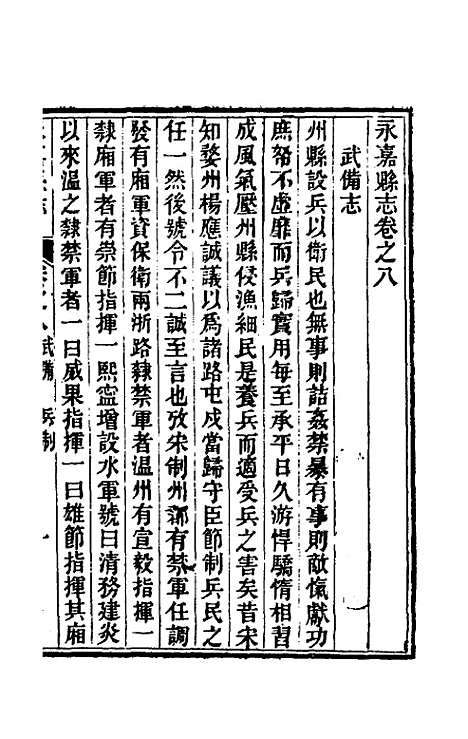 永嘉縣志卷之八
武備志
州縣設兵以衛民也無事則詰姦禁暴有事則敵愾獻功
庶帑不虛靡而兵歸實用每至承平日久游悍驕惰相習
成風氣壓州縣侵漁細民是養兵而適受兵之害矣昔宋
知婺州楊應誠議以爲諸路屯戍當歸守臣節制兵民之
任一然後號令不二誠至言也攷宋制州郡有禁軍任調
發有廂軍資保衛兩浙路隸禁軍者温州有宣毅指揮一
隸廂軍者有崇節指揮一熙寧增設水軍號曰清務建炎
以來温之隸禁軍者一曰威果指揮一曰雄節指揮其廂
武備 兵制 一